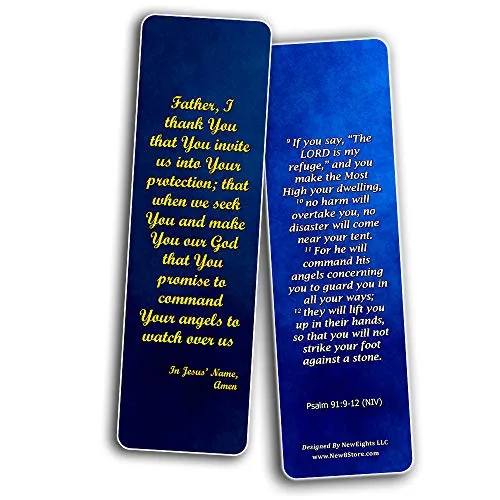 Father, I
thank You
that You invite
us into Your
protection; that
when we seek
You and make
You our God
that You
promise to
command
Your angels to
watch over us
In Jesus' Name,
Amen
9 If you say, “The
LORD is my
refuge,” and you
make the Most
High your dwelling,
10 no harm will
overtake you, no
disaster will come
near your tent.
11 For he will
command his
angels concerning
you to guard you in
all your ways;
12 they will lift you
up in their hands,
so that you will not
strike your foot
against a stone.
Psalm 91:9-12 (NIV)
Designed By NewEights LLC
www.New8Store.com